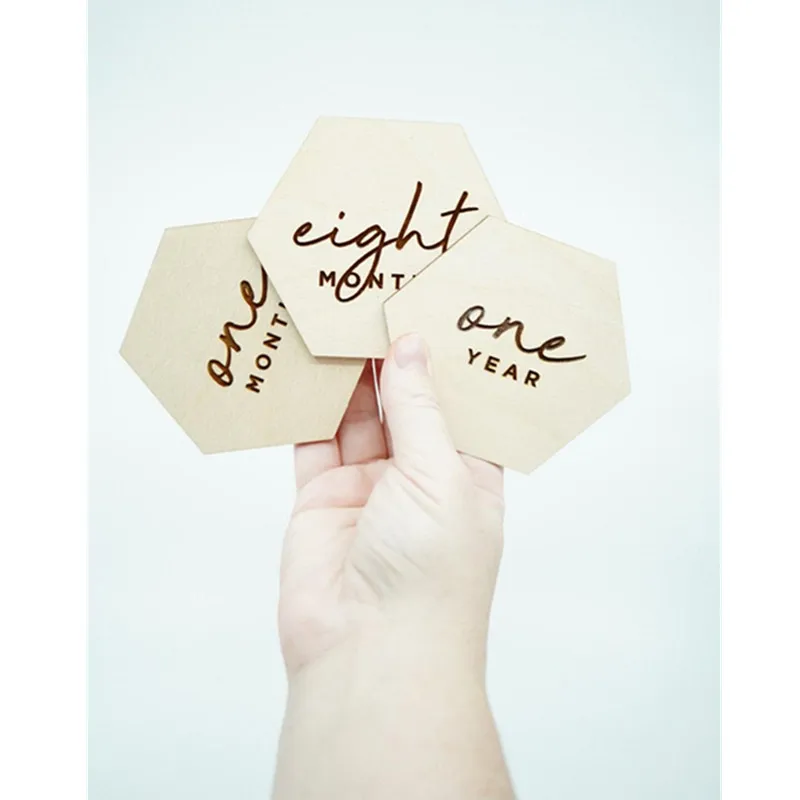 one
MONT
eight
MONT
one
YEAR